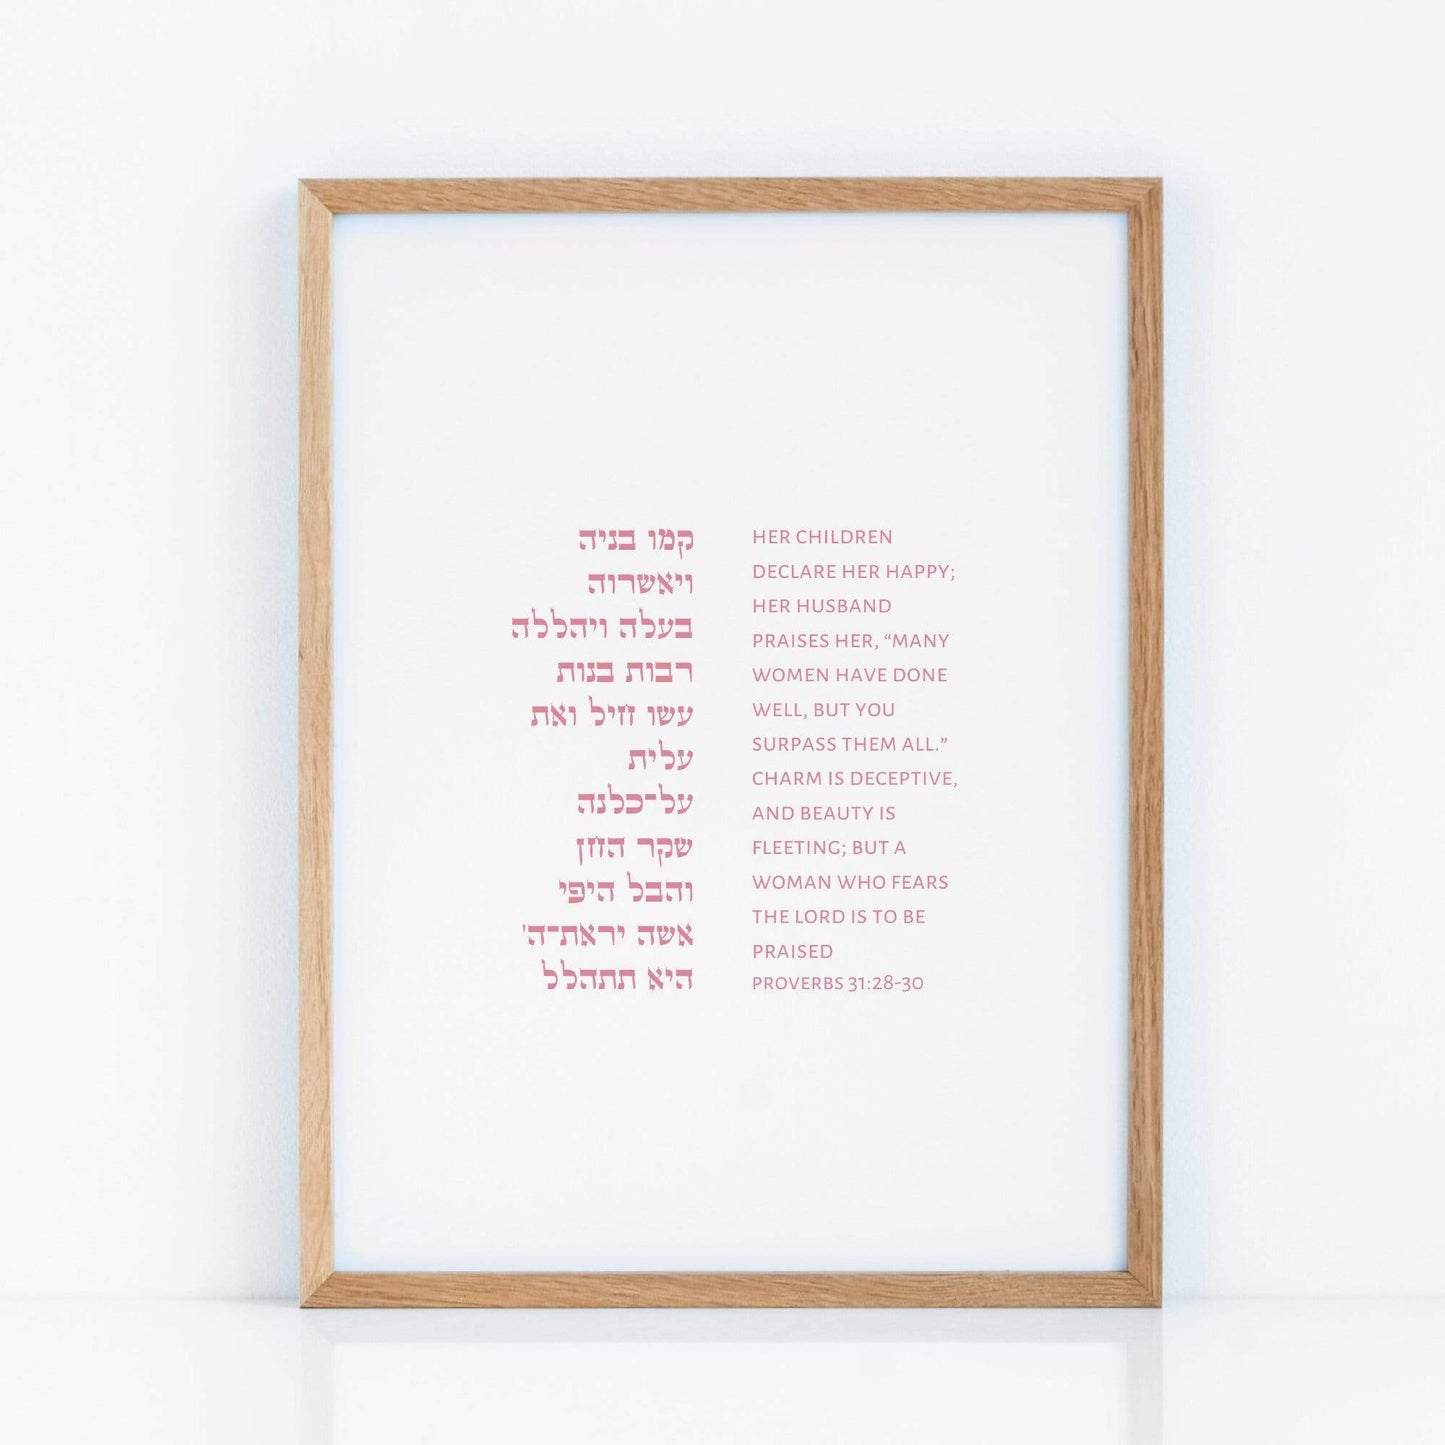 קמו בניה
ויאשרוה
בעלה ויהללה
רבות בנות
עשו חיל ואת
עלית
על־כלנה
שקר החן
והבל היפי
אשה יראת־ה'
היא תתהלל
HER CHILDREN
DECLARE HER HAPPY;
HER HUSBAND
PRAISES HER, “MANY
WOMEN HAVE DONE
WELL, BUT YOU
SURPASS THEM ALL.”
CHARM IS DECEPTIVE,
AND BEAUTY IS
FLEETING; BUT A
WOMAN WHO FEARS
THE LORD IS TO BE
PRAISED
PROVERBS 31:28-30